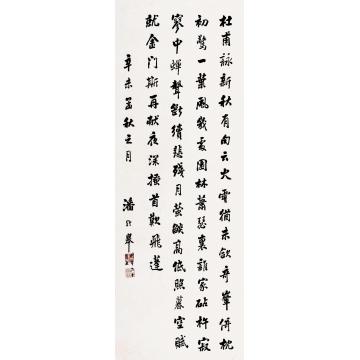 杜甫詠新秋有句云火雲猶未歛奇峯倚枕
初驚一葉風幾處園林蕭瑟裏誰家砧杵寂
寥中蟬聲斷續悲殘月螢燄高低照暮空賦
就金门期再献夜深搔首歎飛蓬
辛未孟秋之月 潘齡皋